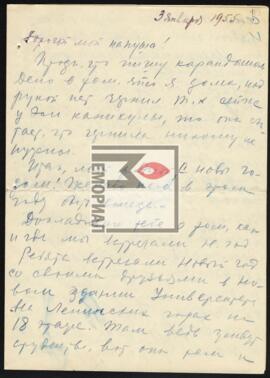 3 января 1955
Дорогой мой папуша!
Прости, что пишу карандашом,
дело в том, что я дома, под
рукой нет чернил, т.к. сейчас
у Дои каникулы, то она счи-
тает, что чернила никому не
нужны.
Итак, с новым го-
дом!
МЕМОРИАЛ
году
Докладываю тебе о том, как
и где мы встречали н. год
Ребята встречали Новый год
со своими друзьями в но-
вом здании Университета
на Ленинских горах на
18 этаже. Там ведь живут
студенты, вот они там и